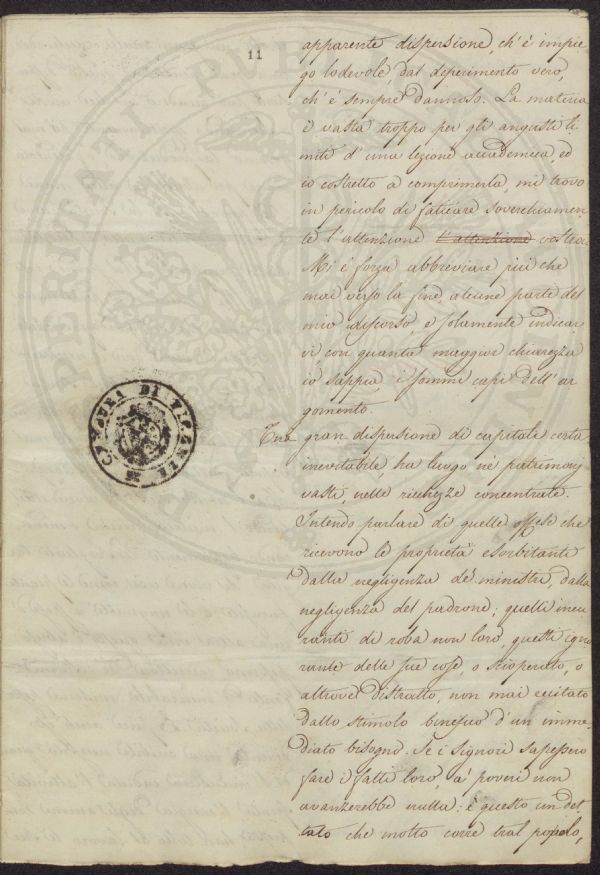 11
apparente dispersione, ch'è impie
go lodevole, dal deperimento vero,
ch'è sempre dannoso. La materia
è vasta troppo per gli angusti li
miti d'una lezione accademica, ed
io costretto a comprimerla, mi trovo
in pericolo di faticare soverchiamen
te l'attenzione l'attenzione vostra.
Mi è forza abbreviare più che
mai verso la fine, alcune parte del
mio discorso, e solamente indicar
vi, con quanta maggior chiarezza
io sappia i sommi capi dell'ar
gomento.
Una gran dispersione di capitale certa
inevitabile, ha luogo ne' patrimonj
vasti, nelle ricchezze concentrate.
Intendo parlare di quelle offese che
ricevono le proprietà esorbitanti
dalla negligenza de' ministri, dalla
negligenza del padrone; quelli incu
ranti di roba non loro, questi igno
rante delle sue cose, o scioperato, o
altrove distratto, non mai eccitato
dallo stimolo benefico d'un imme
diato bisogno. Se i Signori sapessero
fare i fatti loro, a' poveri non
avanzerebbe nulla: è questo un det
tato che molto corre tral popolo,
DI FIRENZE